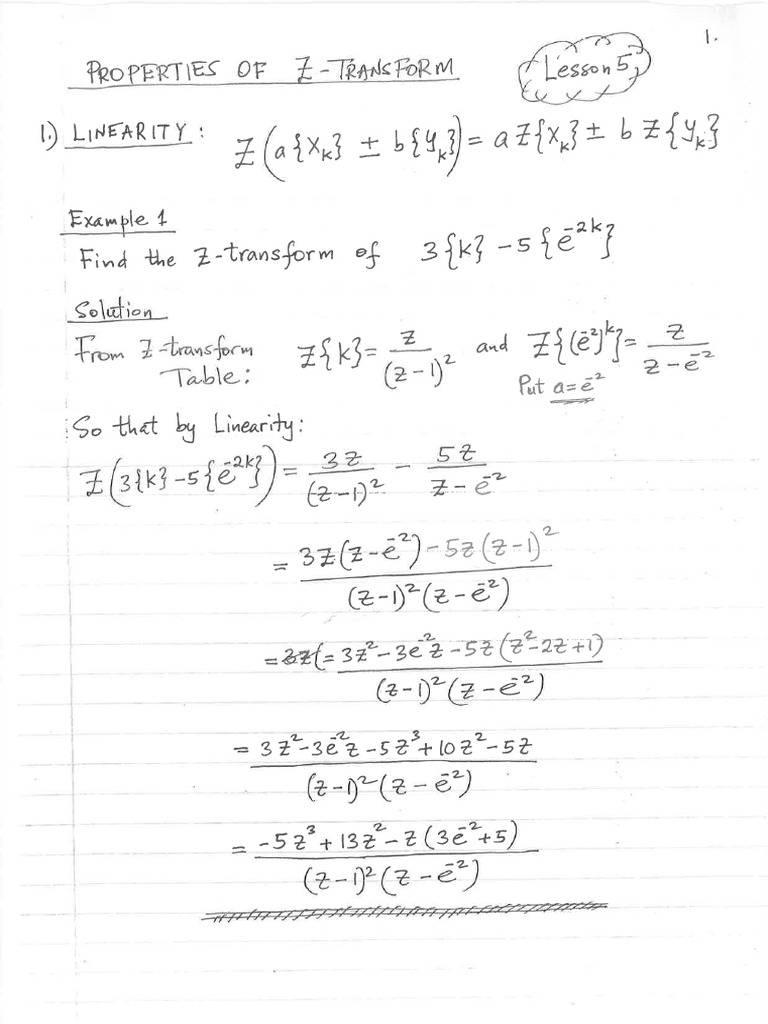 1.
PROPERTIES OF Z-TRANSFORM
Lesson 5
1.) LINEARITY: Z(a{x_k} ± b{y_k}) = a Z{x_k} ± b Z{y_k}
Example 1
Find the Z-transform of 3{k} - 5{e^{-2k}}
Solution
From Z-transform Table: Z{k} = z/(z-1)^2 and Z{(e^{-2})^k} = z/(z-e^{-2})
Put a = e^{-2}
So that by Linearity:
Z(3{k} - 5{e^{-2k}}) = 3z/(z-1)^2 - 5z/(z-e^{-2})
= (3z(z-e^{-2}) - 5z(z-1)^2)/((z-1)^2(z-e^{-2}))
= (= 3z^2 - 3e^{-2}z - 5z(z^2-2z+1))/((z-1)^2(z-e^{-2}))
= (3z^2 - 3e^{-2}z - 5z^3 + 10z^2 - 5z)/((z-1)^2(z-e^{-2}))
= (-5z^3 + 13z^2 - z(3e^{-2}+5))/((z-1)^2(z-e^{-2}))